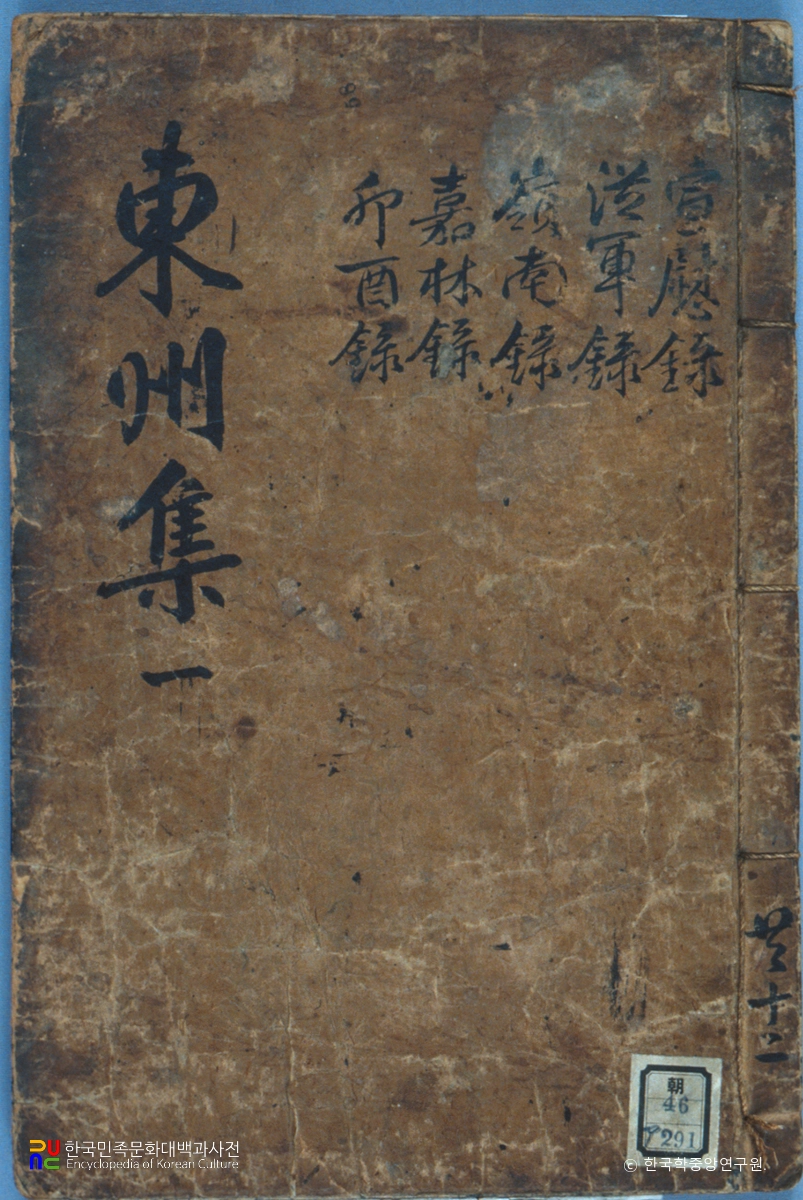 宣慰錄
從軍錄
嶺南錄
嘉林錄
卯酉錄
東州集 一
共十二
朝
46
291
한국민족문화대백과사전
Encyclopedia of Korean Culture
© 한국학중앙연구원